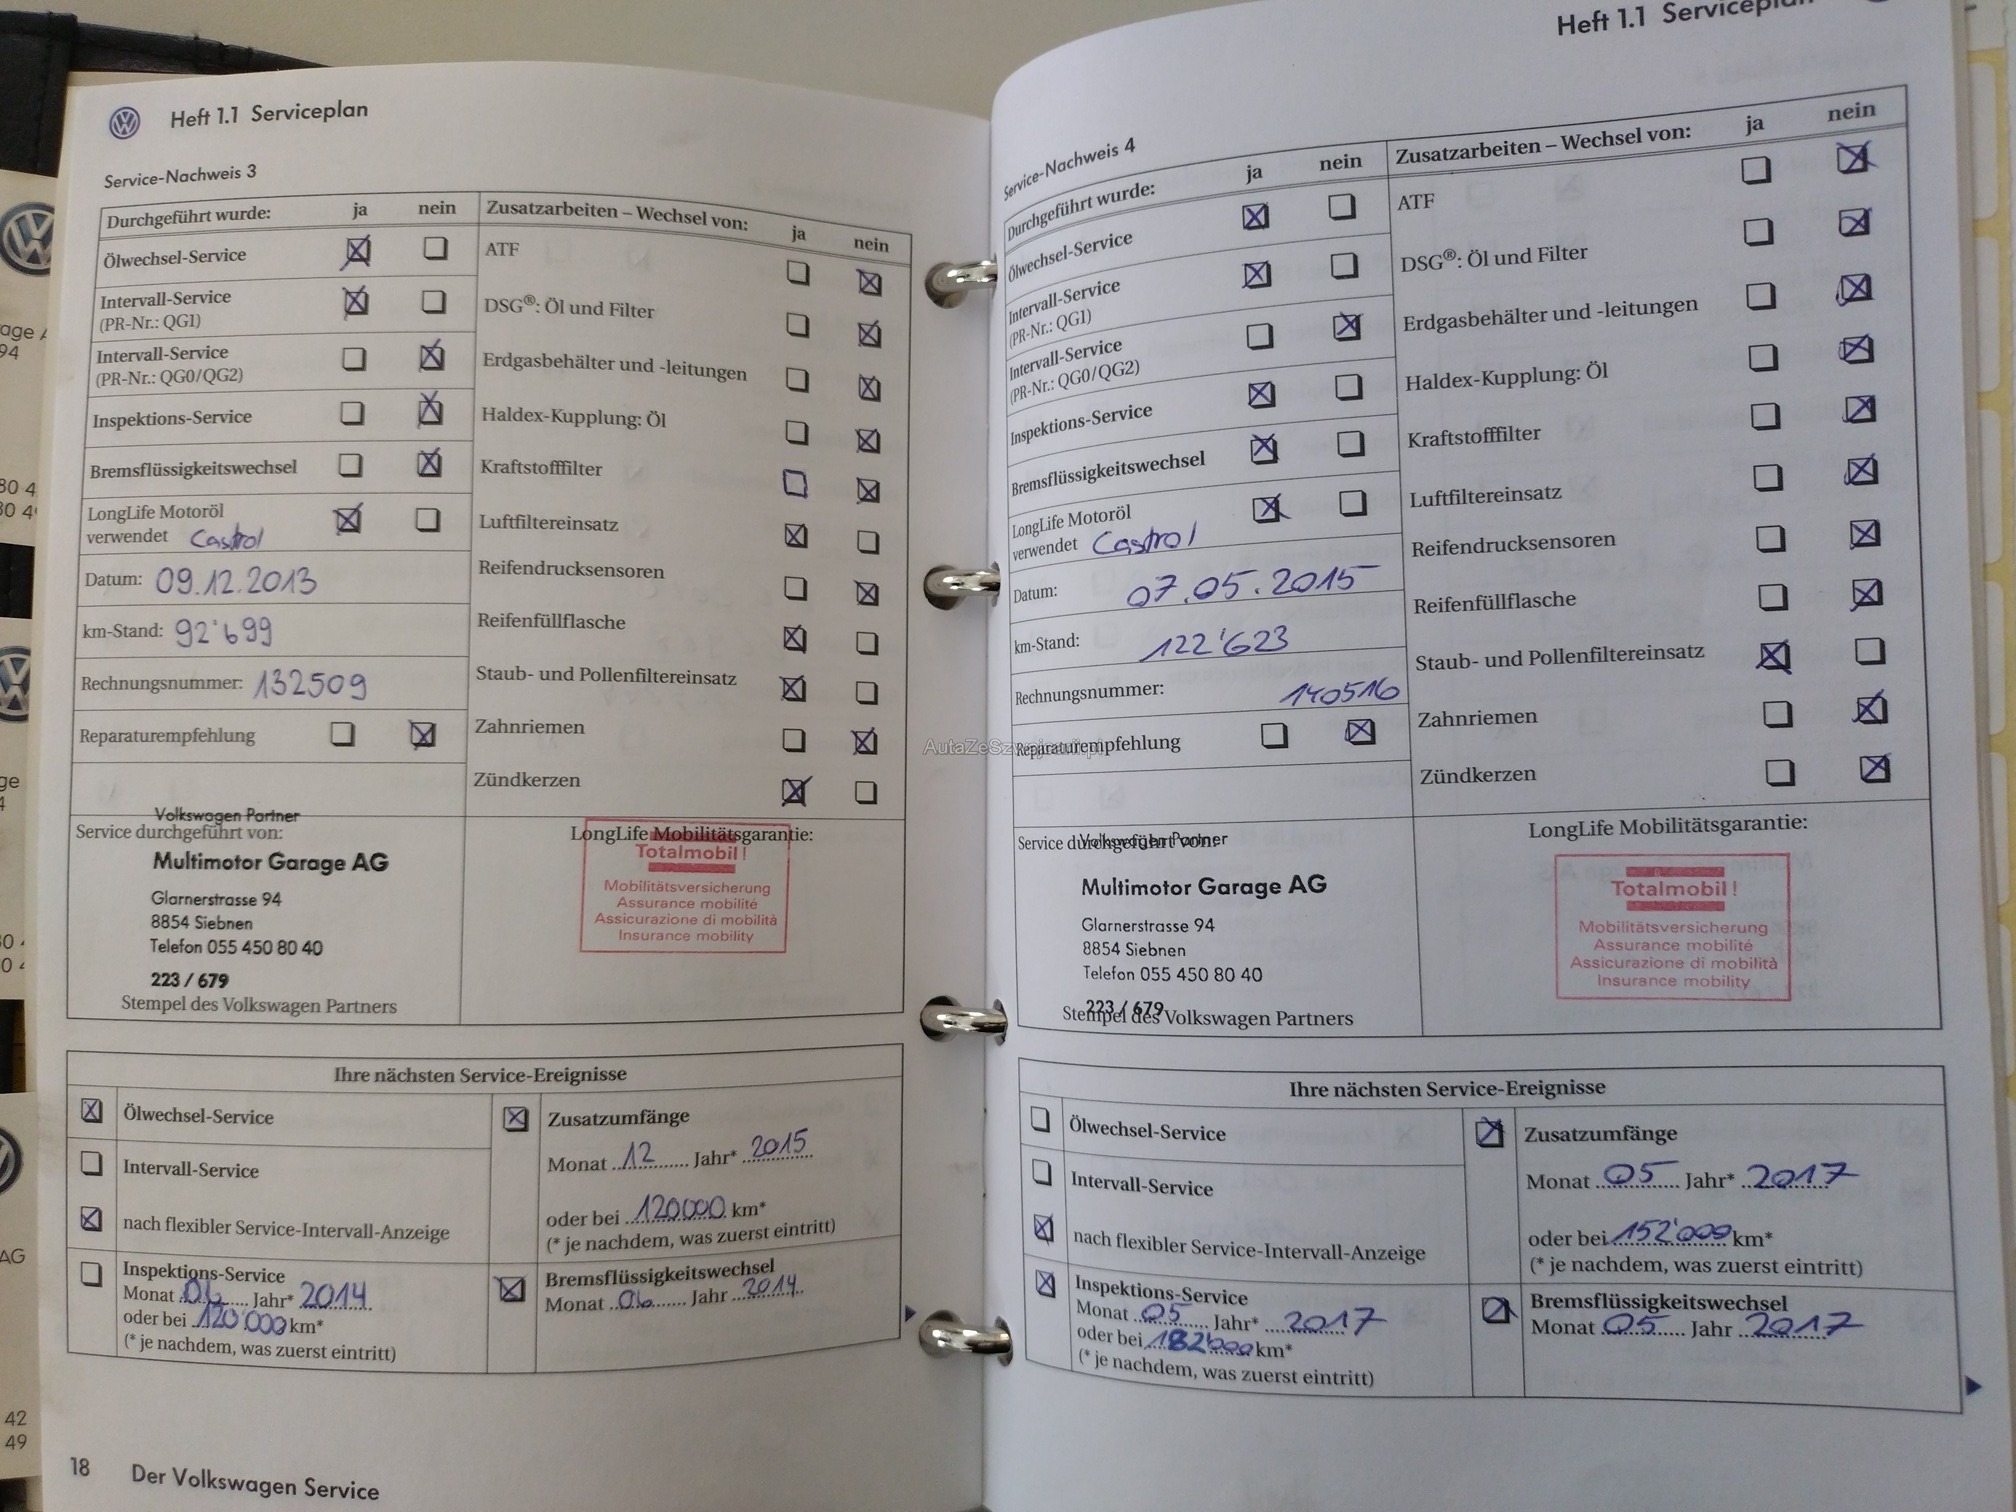 Heft 1.1 Serviceplan
Service-Nachweis 3
Durchgeführt wurde: ja nein
Ölwechsel-Service
Intervall-Service
(PR-Nr.: QG1)
Intervall-Service
(PR-Nr.: QG0/QG2)
Inspektions-Service
Bremsflüssigkeitswechsel
LongLife Motoröl
verwendet Castrol
Datum: 09.12.2013
km-Stand: 92'699
Rechnungsnummer: 132509
Reparaturempfehlung
Zusatzarbeiten – Wechsel von: ja nein
ATF
DSG®: Öl und Filter
Erdgasbehälter und -leitungen
Haldex-Kupplung: Öl
Kraftstofffilter
Luftfiltereinsatz
Reifendrucksensoren
Reifenfüllflasche
Staub- und Pollenfiltereinsatz
Zahnriemen
Zündkerzen
Volkswagen Partner
Service durchgeführt von:
Multimotor Garage AG
Glarnerstrasse 94
8854 Siebnen
Telefon 055 450 80 40
223 / 679
Stempel des Volkswagen Partners
LongLife Mobilitätsgarantie:
Totalmobil!
Mobilitätsversicherung
Assurance mobilité
Assicurazione di mobilità
Insurance mobility
Ihre nächsten Service-Ereignisse
Ölwechsel-Service
Intervall-Service
nach flexibler Service-Intervall-Anzeige
Inspektions-Service
Monat 06 Jahr* 2014
oder bei 120'000 km*
(* je nachdem, was zuerst eintritt)
Zusatzumfänge
Monat 12 Jahr* 2015
oder bei 120000 km*
(* je nachdem, was zuerst eintritt)
Bremsflüssigkeitswechsel
Monat 06 Jahr 2014
18 Der Volkswagen Service
Heft 1.1 Serviceplan
Service-Nachweis 4
Durchgeführt wurde: ja nein
Ölwechsel-Service
Intervall-Service
(PR-Nr.: QG1)
Intervall-Service
(PR-Nr.: QG0/QG2)
Inspektions-Service
Bremsflüssigkeitswechsel
LongLife Motoröl
verwendet Castrol
Datum: 07.05.2015
km-Stand: 122'623
Rechnungsnummer: 140516
Reparaturempfehlung
Zusatzarbeiten – Wechsel von: ja nein
ATF
DSG®: Öl und Filter
Erdgasbehälter und -leitungen
Haldex-Kupplung: Öl
Kraftstofffilter
Luftfiltereinsatz
Reifendrucksensoren
Reifenfüllflasche
Staub- und Pollenfiltereinsatz
Zahnriemen
Zündkerzen
Service durchgeführt von:
Volkswagen Partner
Multimotor Garage AG
Glarnerstrasse 94
8854 Siebnen
Telefon 055 450 80 40
223 / 679
Stempel des Volkswagen Partners
LongLife Mobilitätsgarantie:
Totalmobil!
Mobilitätsversicherung
Assurance mobilité
Assicurazione di mobilità
Insurance mobility
Ihre nächsten Service-Ereignisse
Ölwechsel-Service
Intervall-Service
nach flexibler Service-Intervall-Anzeige
Inspektions-Service
Monat 05 Jahr* 2017
oder bei 182'000 km*
(* je nachdem, was zuerst eintritt)
Zusatzumfänge
Monat 05 Jahr* 2017
oder bei 152'000 km*
(* je nachdem, was zuerst eintritt)
Bremsflüssigkeitswechsel
Monat 05 Jahr 2017